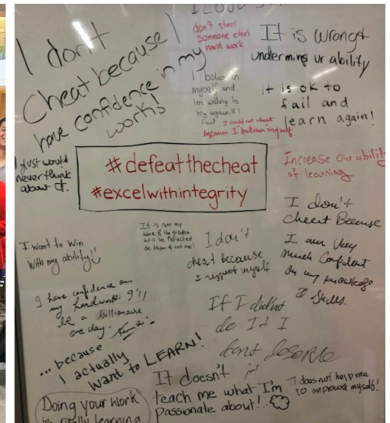 I don't
Cheat because I
have confidence in my
works!
don't steal
someone else's
hard work
It is wrong &
undermines ur ability
it is ok to
fail and
learn again!
I believe in
myself and
I'm willing to
try again if I
fail
I would not cheat
because I believe myself
I just would
never think
about it.
#defeatthecheat
#excelwithintegrity
Increase our ability
of learning
I want to win
with my ability!
It is not my
I don't
cheat because
I respect myself
I don't
cheat Because
I am Very
Much Confident
on my knowledge
& skills.
I have confidence on
my hardwork. I'll
be a billionaire
one day.
If I didn't
do it I
don't deserve
it
...because
I actually
want to LEARN!
It doesn't
teach me what I'm
passionate about!
It does not help me
to improve myself!
Doing your work
is really learning